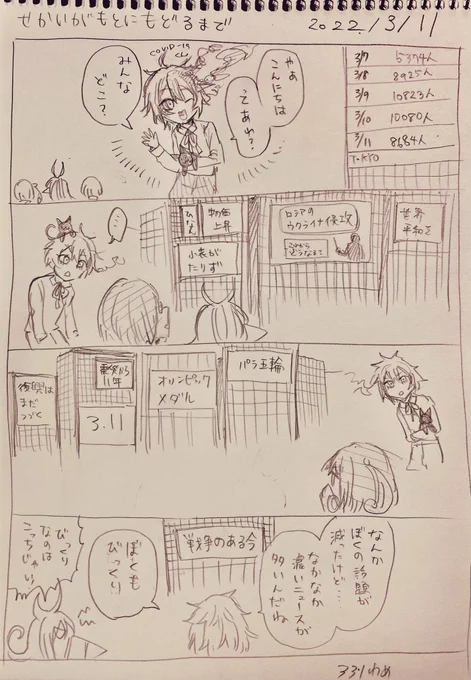 せかいがもとにもどるまで
2022/3/11
COVID-19
やぁ
こんにちは
てあわ?
みんな
どこ?
3/7 5374人
3/8 8925人
3/9 10823人
3/10 10080人
3/11 8684人
TOKYO
世界
平和を
ロシアの
ウクライナ侵攻
物価
上昇
ひなん
小麦が
たりず
…
パラ五輪
オリンピック
メダル
震災から
11年
3.11
復興は
まだ
つづく
戦争のある今
なんか
ぼくの話題が
減ったけど…
なかなか
濃いニュースが
多いんだね
ぼくも
びっくり
びっくり
なのは
こっちじゃい